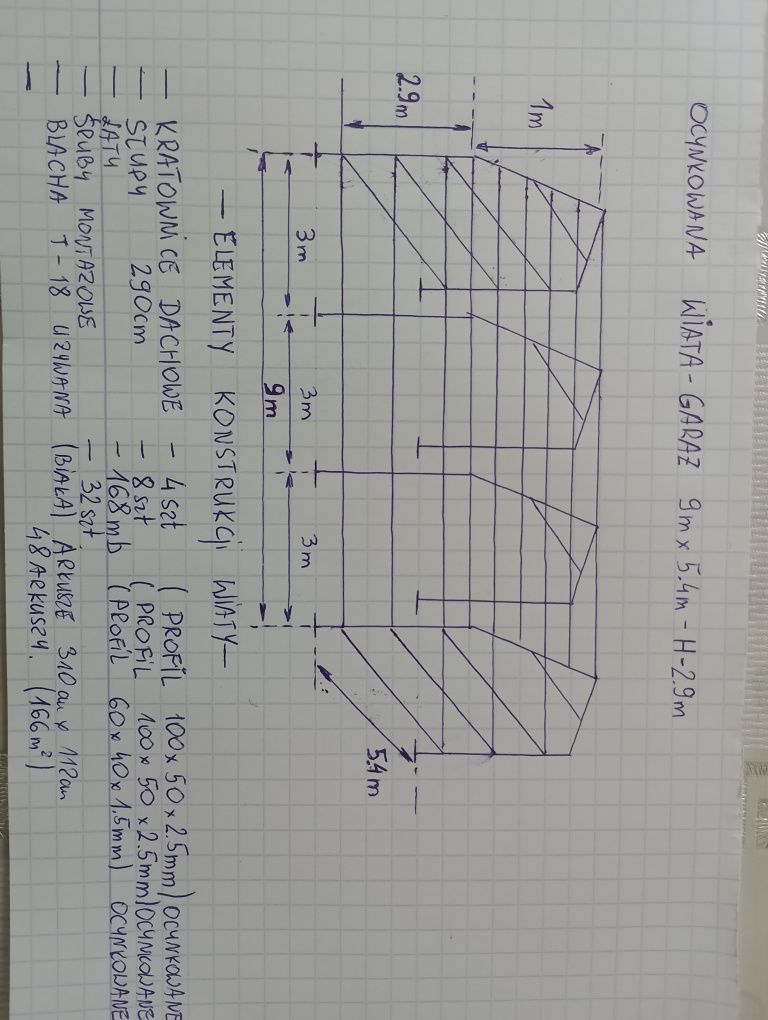 OCYNKOWANA WIATA - GARAŻ 9m x 5.4m - H-2.9m
1m
2.9m
3m
3m
3m
9m
5.4m
— ELEMENTY KONSTRUKCJI WIATY —
— KRATOWNICE DACHOWE - 4 szt (PROFIL 100 x 50 x 2.5mm) OCYNKOWANE
— SŁUPY 290cm - 8 szt (PROFIL 100 x 50 x 2.5mm) OCYNKOWANE
— ŁATY - 168 mb (PROFIL 60 x 40 x 1.5mm) OCYNKOWANE
— ŚRUBY MONTAŻOWE - 32 szt
— BLACHA T-18 UŻYWANA (BIAŁA) ARKUSZE 310cm x 112cm
— 48 ARKUSZY. (166m²)